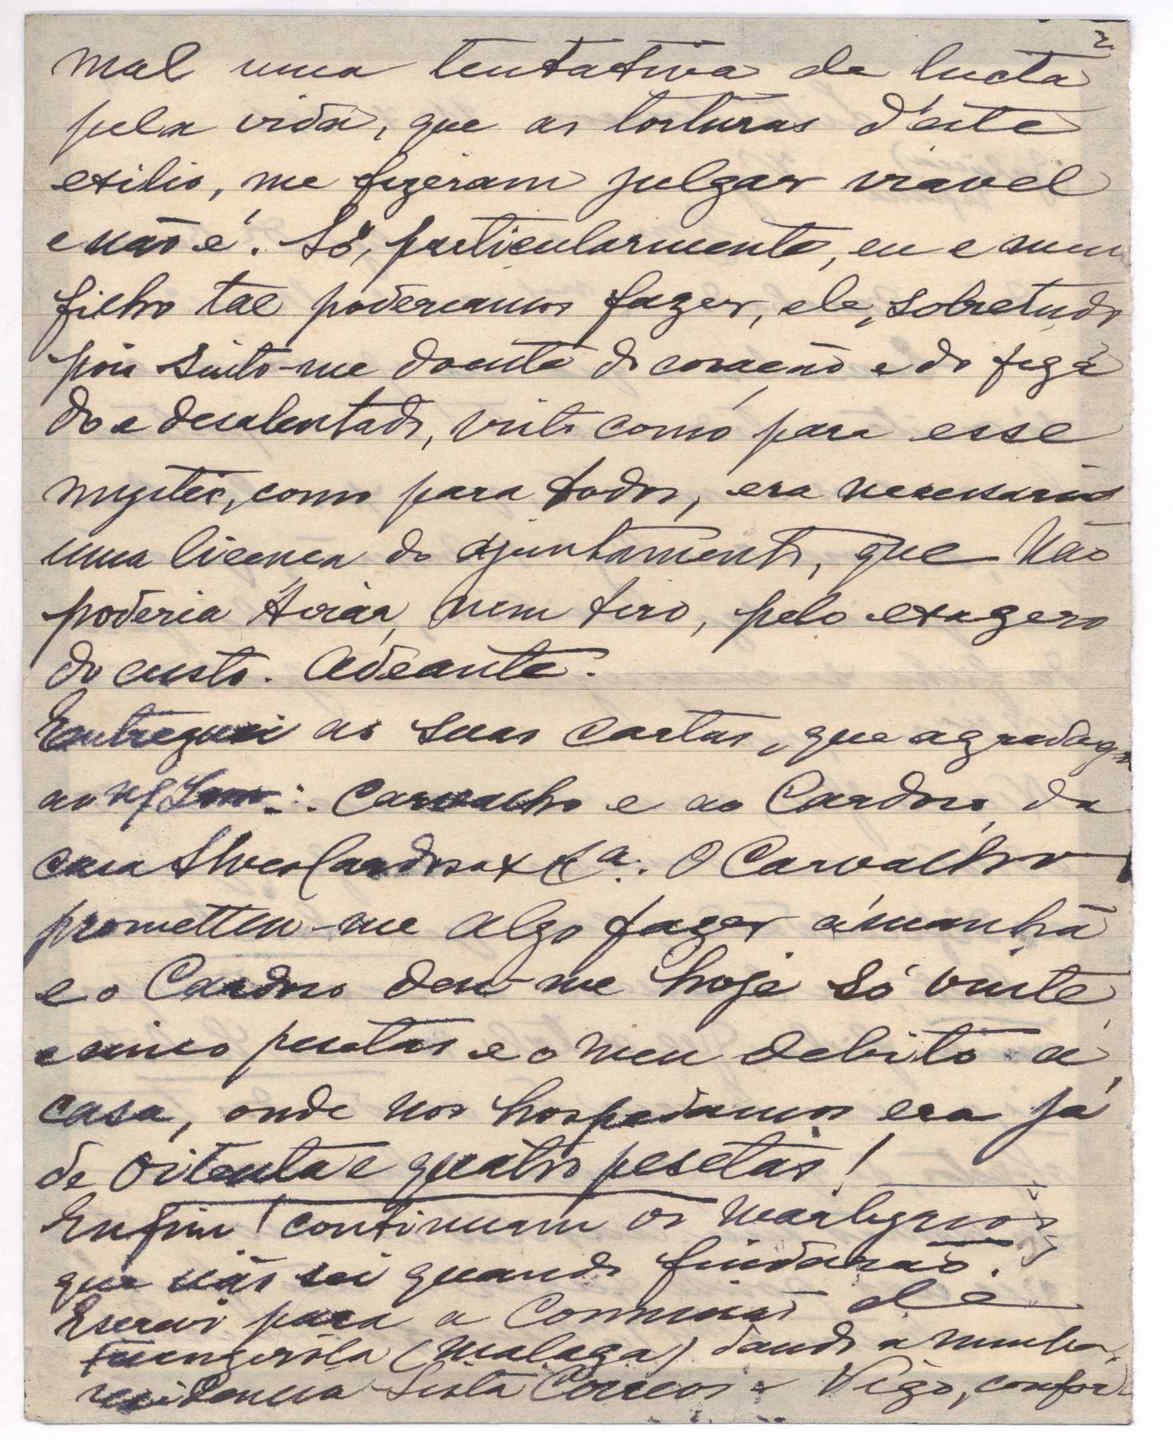 2
mal uma tentativa de lucta
pela vida, que as torturas d'este
exilio, me fizeram julgar viavel
e não é. Só, particularmente, eu e meu
filho tal poderiamos fazer, ele, sobretudo
pois sinto-me doente do coração e do figa
do e desalentado, visto como para esse
mystér, como para todos, era necessario
uma licença do ajuntamento, que não
poderia tirar, nem tiro, pelo exagero
do custo. Adeante.
Entreguei as suas cartas, que agradeço
ao Carvalho e ao Cardoso, da
casa Alves Cardoso & Cª. O Carvalho
prometteu-me algo fazer ámanhã
e o Cardoso deu-me hoje só vinte
e cinco pesetas e o meu debito á
casa, onde nos hospedamos era já
de oitenta e quatro pesetas!
Enfim! continuam os martyrios
que não sei quando findarão.
Escrevi para a Comissão de
Fuengirola (Malaga) dando a minha
residencia Lista Correos - Vigo, confor